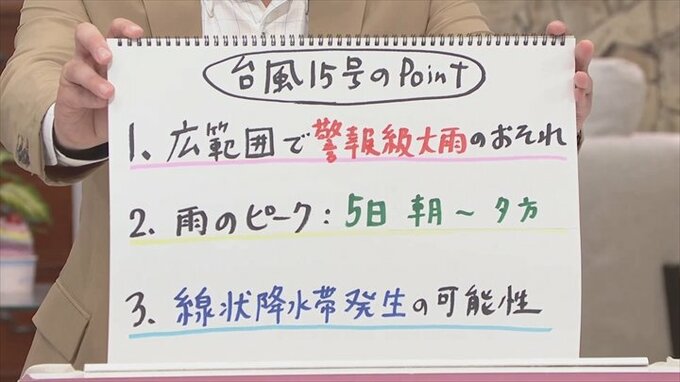 台風15号のPoint
1. 広範囲で警報級大雨のおそれ
2. 雨のピーク：5日 朝～夕方
3. 線状降水帯発生の可能性